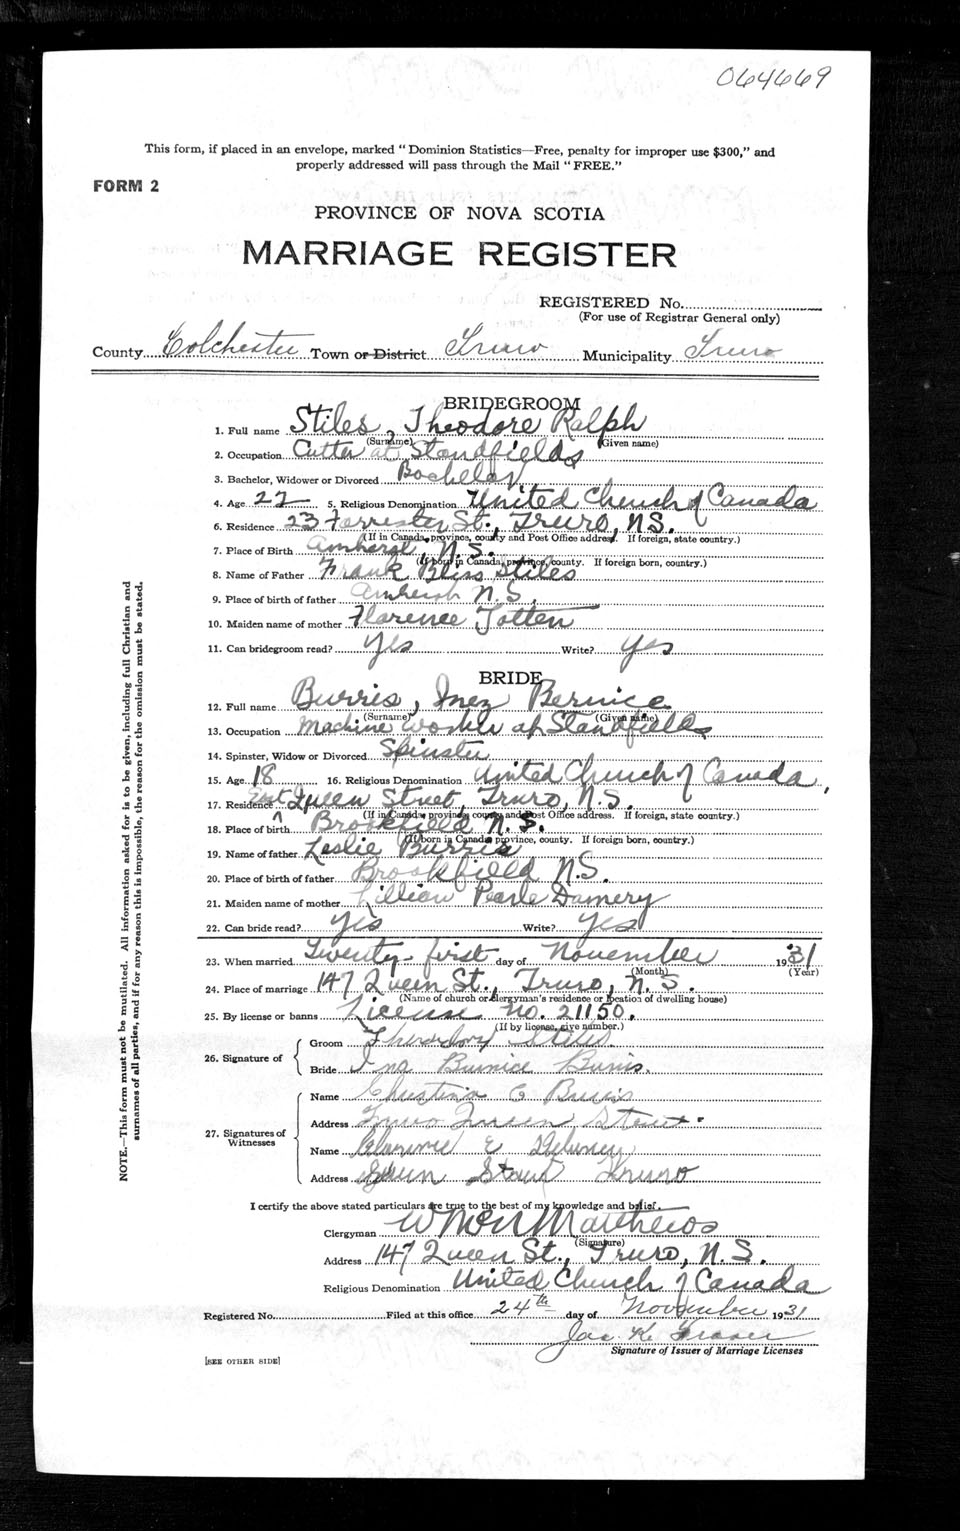 064669
This form, if placed in an envelope, marked "Dominion Statistics—Free, penalty for improper use $300," and
properly addressed will pass through the Mail "FREE."
FORM 2
PROVINCE OF NOVA SCOTIA
MARRIAGE REGISTER
REGISTERED No.
(For use of Registrar General only)
County Colchester Town or District Truro Municipality Truro
BRIDEGROOM
1. Full name Stiles, Theodore Ralph
(Surname) (Given name)
2. Occupation Cutter at Standfields
3. Bachelor, Widower or Divorced Bachelor
4. Age 22 5. Religious Denomination United Church of Canada
6. Residence 23 Forrester St., Truro, N.S.
(If in Canada, province, county and Post Office address. If foreign, state country.)
7. Place of Birth Amherst, N.S.
(If born in Canada, province, county. If foreign born, country.)
8. Name of Father Frank Bliss Stiles
9. Place of birth of father Amherst N.S.
10. Maiden name of mother Florence Totten
11. Can bridegroom read? Yes Write? Yes
BRIDE
12. Full name Burris, Inez Bernice
(Surname) (Given name)
13. Occupation Machine worker at Standfields
14. Spinster, Widow or Divorced Spinster
15. Age 18 16. Religious Denomination United Church of Canada,
17. Residence East Queen Street, Truro, N.S.
(If in Canada, province, county and Post Office address. If foreign, state country.)
18. Place of birth Brookfield N.S.
(If born in Canada, province, county. If foreign born, country.)
19. Name of father Leslie Burris
20. Place of birth of father Brookfield N.S.
21. Maiden name of mother Lillian Pearle Damery
22. Can bride read? Yes Write? Yes
23. When married Twenty-first day of November 1931
(Month) (Year)
24. Place of marriage 147 Queen St., Truro, N.S.
(Name of church or clergyman's residence or location of dwelling house)
25. By license or banns License no. 21150.
(If by license, give number.)
26. Signature of
Groom Stiles
Bride Burris.
27. Signatures of Witnesses
Name Christina C Burris
Address Truro Queen Street
Name E
Address Queen Street Truro
I certify the above stated particulars are true to the best of my knowledge and belief.
Clergyman Matthews
(Signature)
Address 147 Queen St., Truro, N.S.
Religious Denomination United Church of Canada
Registered No. Filed at this office 24th day of November 1931
Jas. K. Fraser
Signature of Issuer of Marriage Licenses
[SEE OTHER SIDE]
NOTE.—This form must not be mutilated. All information asked for is to be given, including full Christian and
surnames of all parties, and if for any reason this is impossible, the reason for the omission must be stated.